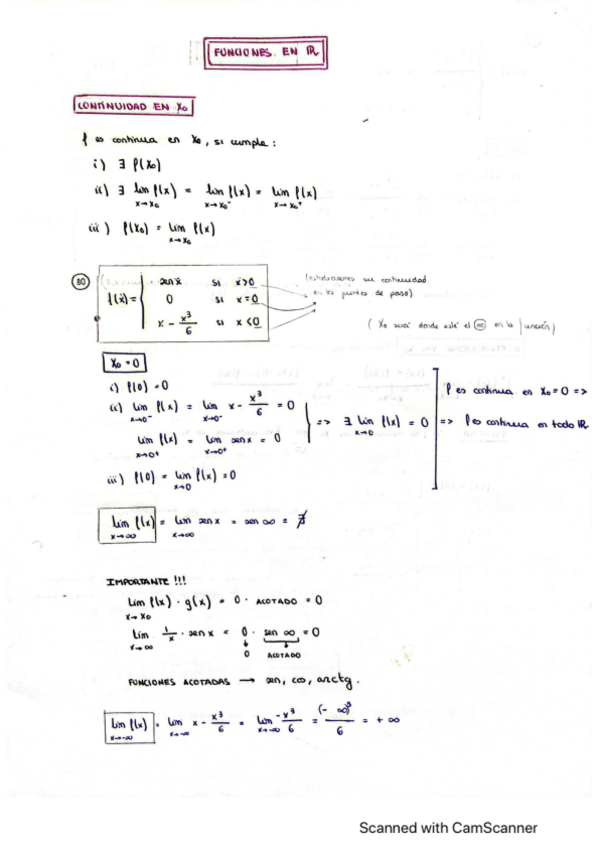 FUNCIONES EN IR
CONTINUIDAD EN X₀
f es continua en X₀, si cumple:
i) ∃ f(X₀)
ii) ∃ lim f(x) = lim f(x) = lim f(x)
x→X₀ x→X₀⁻ x→X₀⁺
iii) f(X₀) = lim f(x)
x→X₀
30
f(x) = { sen x si x>0
0 si x=0
x - x³/6 si x<0
(estudiaremos su continuidad
en los puntos de paso)
(X₀ será donde esté el = en la función)
X₀ = 0
i) f(0) = 0
ii) lim f(x) = lim x - x³/6 = 0
x→0⁻ x→0⁻
lim f(x) = lim sen x = 0
x→0⁺ x→0⁺
=> ∃ lim f(x) = 0
x→0
iii) f(0) = lim f(x) = 0
x→0
f es continua en X₀=0 =>
=> f es continua en todo IR
lim f(x) = lim sen x = sen ∞ = ∄
x→∞ x→∞
IMPORTANTE !!!
lim f(x) · g(x) = 0 · ACOTADO = 0
x→X₀
lim 1/x · sen x = 0 · sen ∞ = 0
x→∞
0 ACOTADO
FUNCIONES ACOTADAS → sen, cos, arctg.
lim f(x) = lim x - x³/6 = lim -x³/6 = (-∞)³/6 = +∞
x→-∞ x→-∞ x→-∞
Scanned with CamScanner